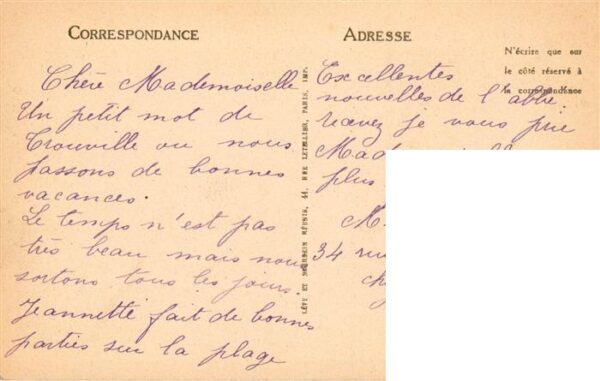 CORRESPONDANCE
Chère Mademoiselle
Un petit mot de
Trouville où nous
passons de bonnes
vacances.
Le temps n'est pas
très beau mais nous
sortons tous les jours.
Jeannette fait de bonnes
parties sur la plage
LÉVY ET NEURDEIN RÉUNIS, 44, RUE LETELLIER, PARIS, IMP.
ADRESSE
N'écrire que sur
le côté réservé à
la correspondance
Excellentes
nouvelles de l'abbé.
recevez je vous prie
plus
M.
34 rue